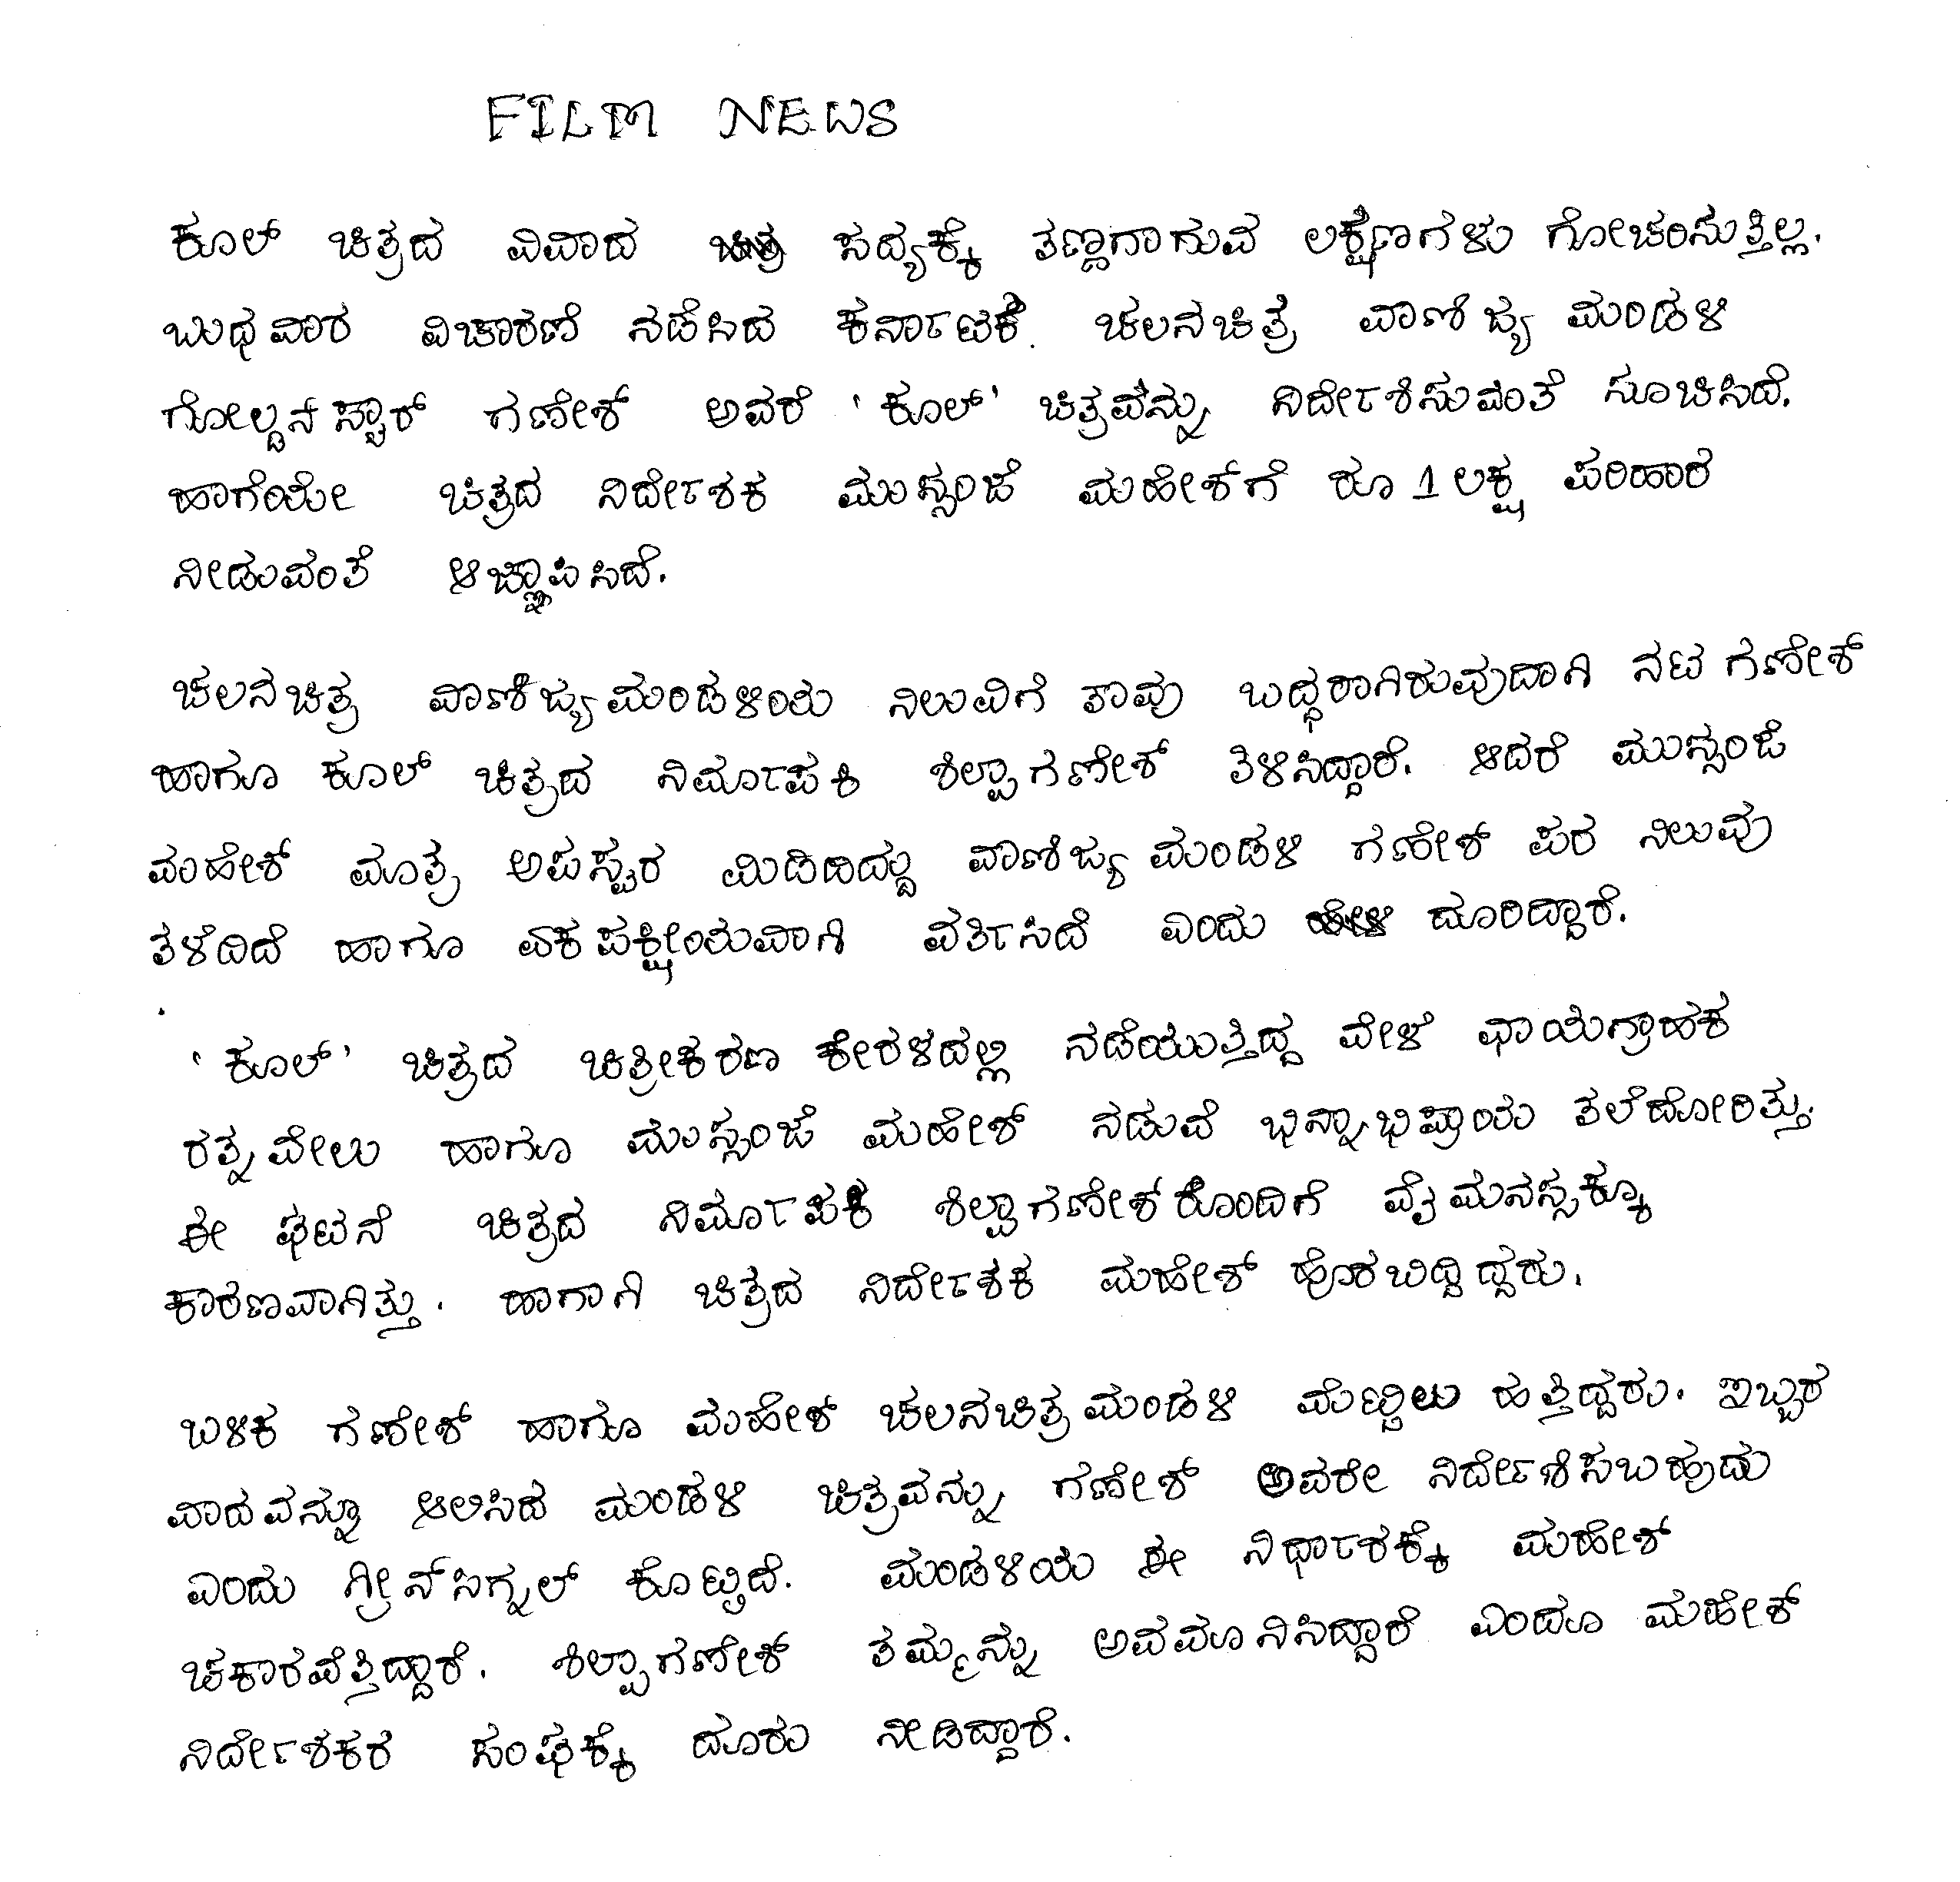 FILM NEWS
ಕೂಲ್ ಚಿತ್ರದ ವಿವಾದ ಸದ್ಯಕ್ಕೆ ತಣ್ಣಗಾಗುವ ಲಕ್ಷಣಗಳು ಗೋಚರಿಸುತ್ತಿಲ್ಲ.
ಬುಧವಾರ ವಿಚಾರಣೆ ನಡೆಸಿದ ಕರ್ನಾಟಕ ಚಲನಚಿತ್ರ ವಾಣಿಜ್ಯ ಮಂಡಳಿ
ಗೋಲ್ಡನ್ ಸ್ಟಾರ್ ಗಣೇಶ್ ಅವರೆ 'ಕೂಲ್' ಚಿತ್ರವನ್ನು ನಿರ್ದೇಶಿಸುವಂತೆ ಸೂಚಿಸಿದೆ.
ಹಾಗೆಯೇ ಚಿತ್ರದ ನಿರ್ದೇಶಕ ಮುಸ್ಸಂಜೆ ಮಹೇಶ್‌ಗೆ ರೂ 1 ಲಕ್ಷ ಪರಿಹಾರ
ನೀಡುವಂತೆ ಆಜ್ಞಾಪಿಸಿದೆ.
ಚಲನಚಿತ್ರ ವಾಣಿಜ್ಯಮಂಡಳಿಯ ನಿಲುವಿಗೆ ತಾವು ಬದ್ಧರಾಗಿರುವುದಾಗಿ ನಟ ಗಣೇಶ್
ಹಾಗೂ ಕೂಲ್ ಚಿತ್ರದ ನಿರ್ಮಾಪಕಿ ಶಿಲ್ಪಾಗಣೇಶ್ ತಿಳಿಸಿದ್ದಾರೆ. ಆದರೆ ಮುಸ್ಸಂಜೆ
ಮಹೇಶ್ ಮಾತ್ರ ಅಪಸ್ವರ ಮಿಡಿದಿದ್ದು ವಾಣಿಜ್ಯ ಮಂಡಳಿ ಗಣೇಶ್ ಪರ ನಿಲುವು
ತಳೆದಿದೆ ಹಾಗೂ ಏಕಪಕ್ಷೀಯವಾಗಿ ವರ್ತಿಸಿದೆ ಎಂದು ದೂರಿದ್ದಾರೆ.
'ಕೂಲ್' ಚಿತ್ರದ ಚಿತ್ರೀಕರಣ ಕೇರಳದಲ್ಲಿ ನಡೆಯುತ್ತಿದ್ದ ವೇಳೆ ಛಾಯಗ್ರಾಹಕ
ರತ್ನವೇಲು ಹಾಗೂ ಮುಸ್ಸಂಜೆ ಮಹೇಶ್ ನಡುವೆ ಭಿನ್ನಾಭಿಪ್ರಾಯ ತಲೆದೋರಿತ್ತು.
ಈ ಘಟನೆ ಚಿತ್ರದ ನಿರ್ಮಾಪಕಿ ಶಿಲ್ಪಾಗಣೇಶ್‌ರೊಂದಿಗೆ ವೈಮನಸ್ಸಕ್ಕೂ
ಕಾರಣವಾಗಿತ್ತು. ಹಾಗಾಗಿ ಚಿತ್ರದ ನಿರ್ದೇಶಕ ಮಹೇಶ್ ಹೊರಬಿದ್ದಿದ್ದರು.
ಬಳಿಕ ಗಣೇಶ್ ಹಾಗೂ ಮಹೇಶ್ ಚಲನಚಿತ್ರ ಮಂಡಳಿ ಮೆಟ್ಟಿಲು ಹತ್ತಿದ್ದರು. ಇಬ್ಬರ
ವಾದವನ್ನೂ ಆಲಿಸಿದ ಮಂಡಳಿ ಚಿತ್ರವನ್ನು ಗಣೇಶ್ ಅವರೇ ನಿರ್ದೇಶಿಸಬಹುದು
ಎಂದು ಗ್ರೀನ್‌ಸಿಗ್ನಲ್ ಕೊಟ್ಟಿದೆ. ಮಂಡಳಿಯ ಈ ನಿರ್ಧಾರಕ್ಕೆ ಮಹೇಶ್
ಚಕಾರವೆತ್ತಿದ್ದಾರೆ. ಶಿಲ್ಪಾಗಣೇಶ್ ತಮ್ಮನ್ನು ಅವಮಾನಿಸಿದ್ದಾರೆ ಎಂದೂ ಮಹೇಶ್
ನಿರ್ದೇಶಕರ ಸಂಘಕ್ಕೆ ದೂರು ನೀಡಿದ್ದಾರೆ.